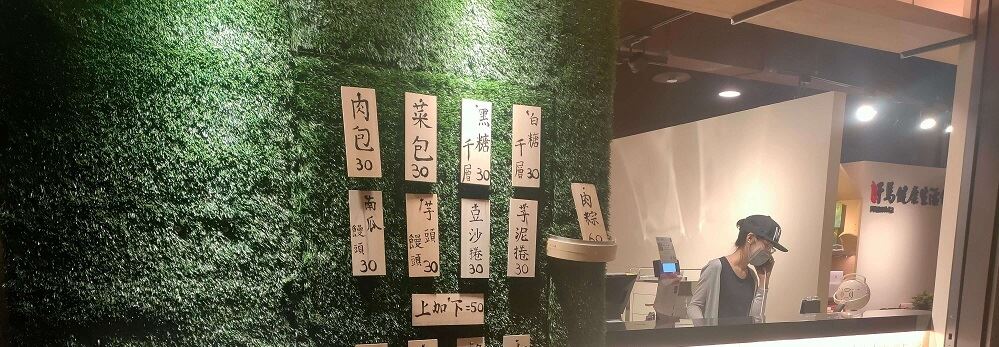 肉包
30
菜包
30
黑糖
千層 30
白糖
千層 30
南瓜
饅頭 30
芋頭
饅頭 30
豆沙捲
30
芋泥捲
30
肉粽
60
上加下=50